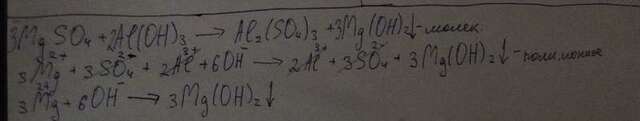 3MgSO₄+2Al(OH)₃ → Al₂(SO₄)₃ +3Mg(OH)₂↓-молек.
3Mg²⁺ + 3SO₄²⁻ + 2Al³⁺ + 6OH⁻ → 2Al³⁺ + 3SO₄²⁻ + 3Mg(OH)₂↓-полн.ионное
3Mg²⁺ + 6OH⁻ → 3Mg(OH)₂↓